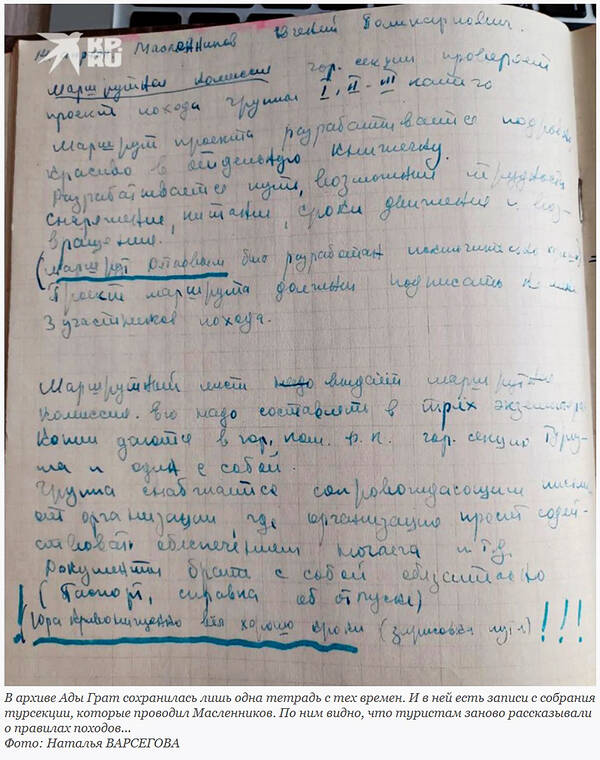 KP.RU
Масленников Евгений Поликарпович.
Маршрутная комиссия гор. секции проверяет
проект похода группы I, II - III
Маршрут проекта разрабатывается подробно
красиво в отдельную книжечку.
Разрабатывается пути, возможные трудности
снаряжение, питание, сроки движения и воз-
вращения.
(маршрут был разработан
Проект маршрута должны подписать не менее
3 участников похода.
Маршрутный лист надо выдаёт маршрутная
комиссия. Его надо составлять в трёх экземплярах
Копии даются в гор. ком. ф.к. гор. секцию Туриз-
ма и один с собой.
Группа снабжается сопроводающим письмом
от организации, где организацию просят содей-
ствовать обеспечением ночлега и т.д.
Документы брать с собой обязательно
(Паспорт, справка об отпуске)
! Юра Кривонищенко вёл хорошо кроки (зарисовка пути) !!!
В архиве Ады Грат сохранилась лишь одна тетрадь с тех времен. И в ней есть записи с собрания
турсекции, которые проводил Масленников. По ним видно, что туристам заново рассказывали
о правилах походов...
Фото: Наталья ВАРСЕГОВА